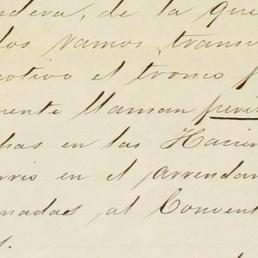 ndera, de la que
los vamos, trans
otivo el tronco
ente llaman
has en las Hacien
rio en el arrendam
nadas, al Convent
s.